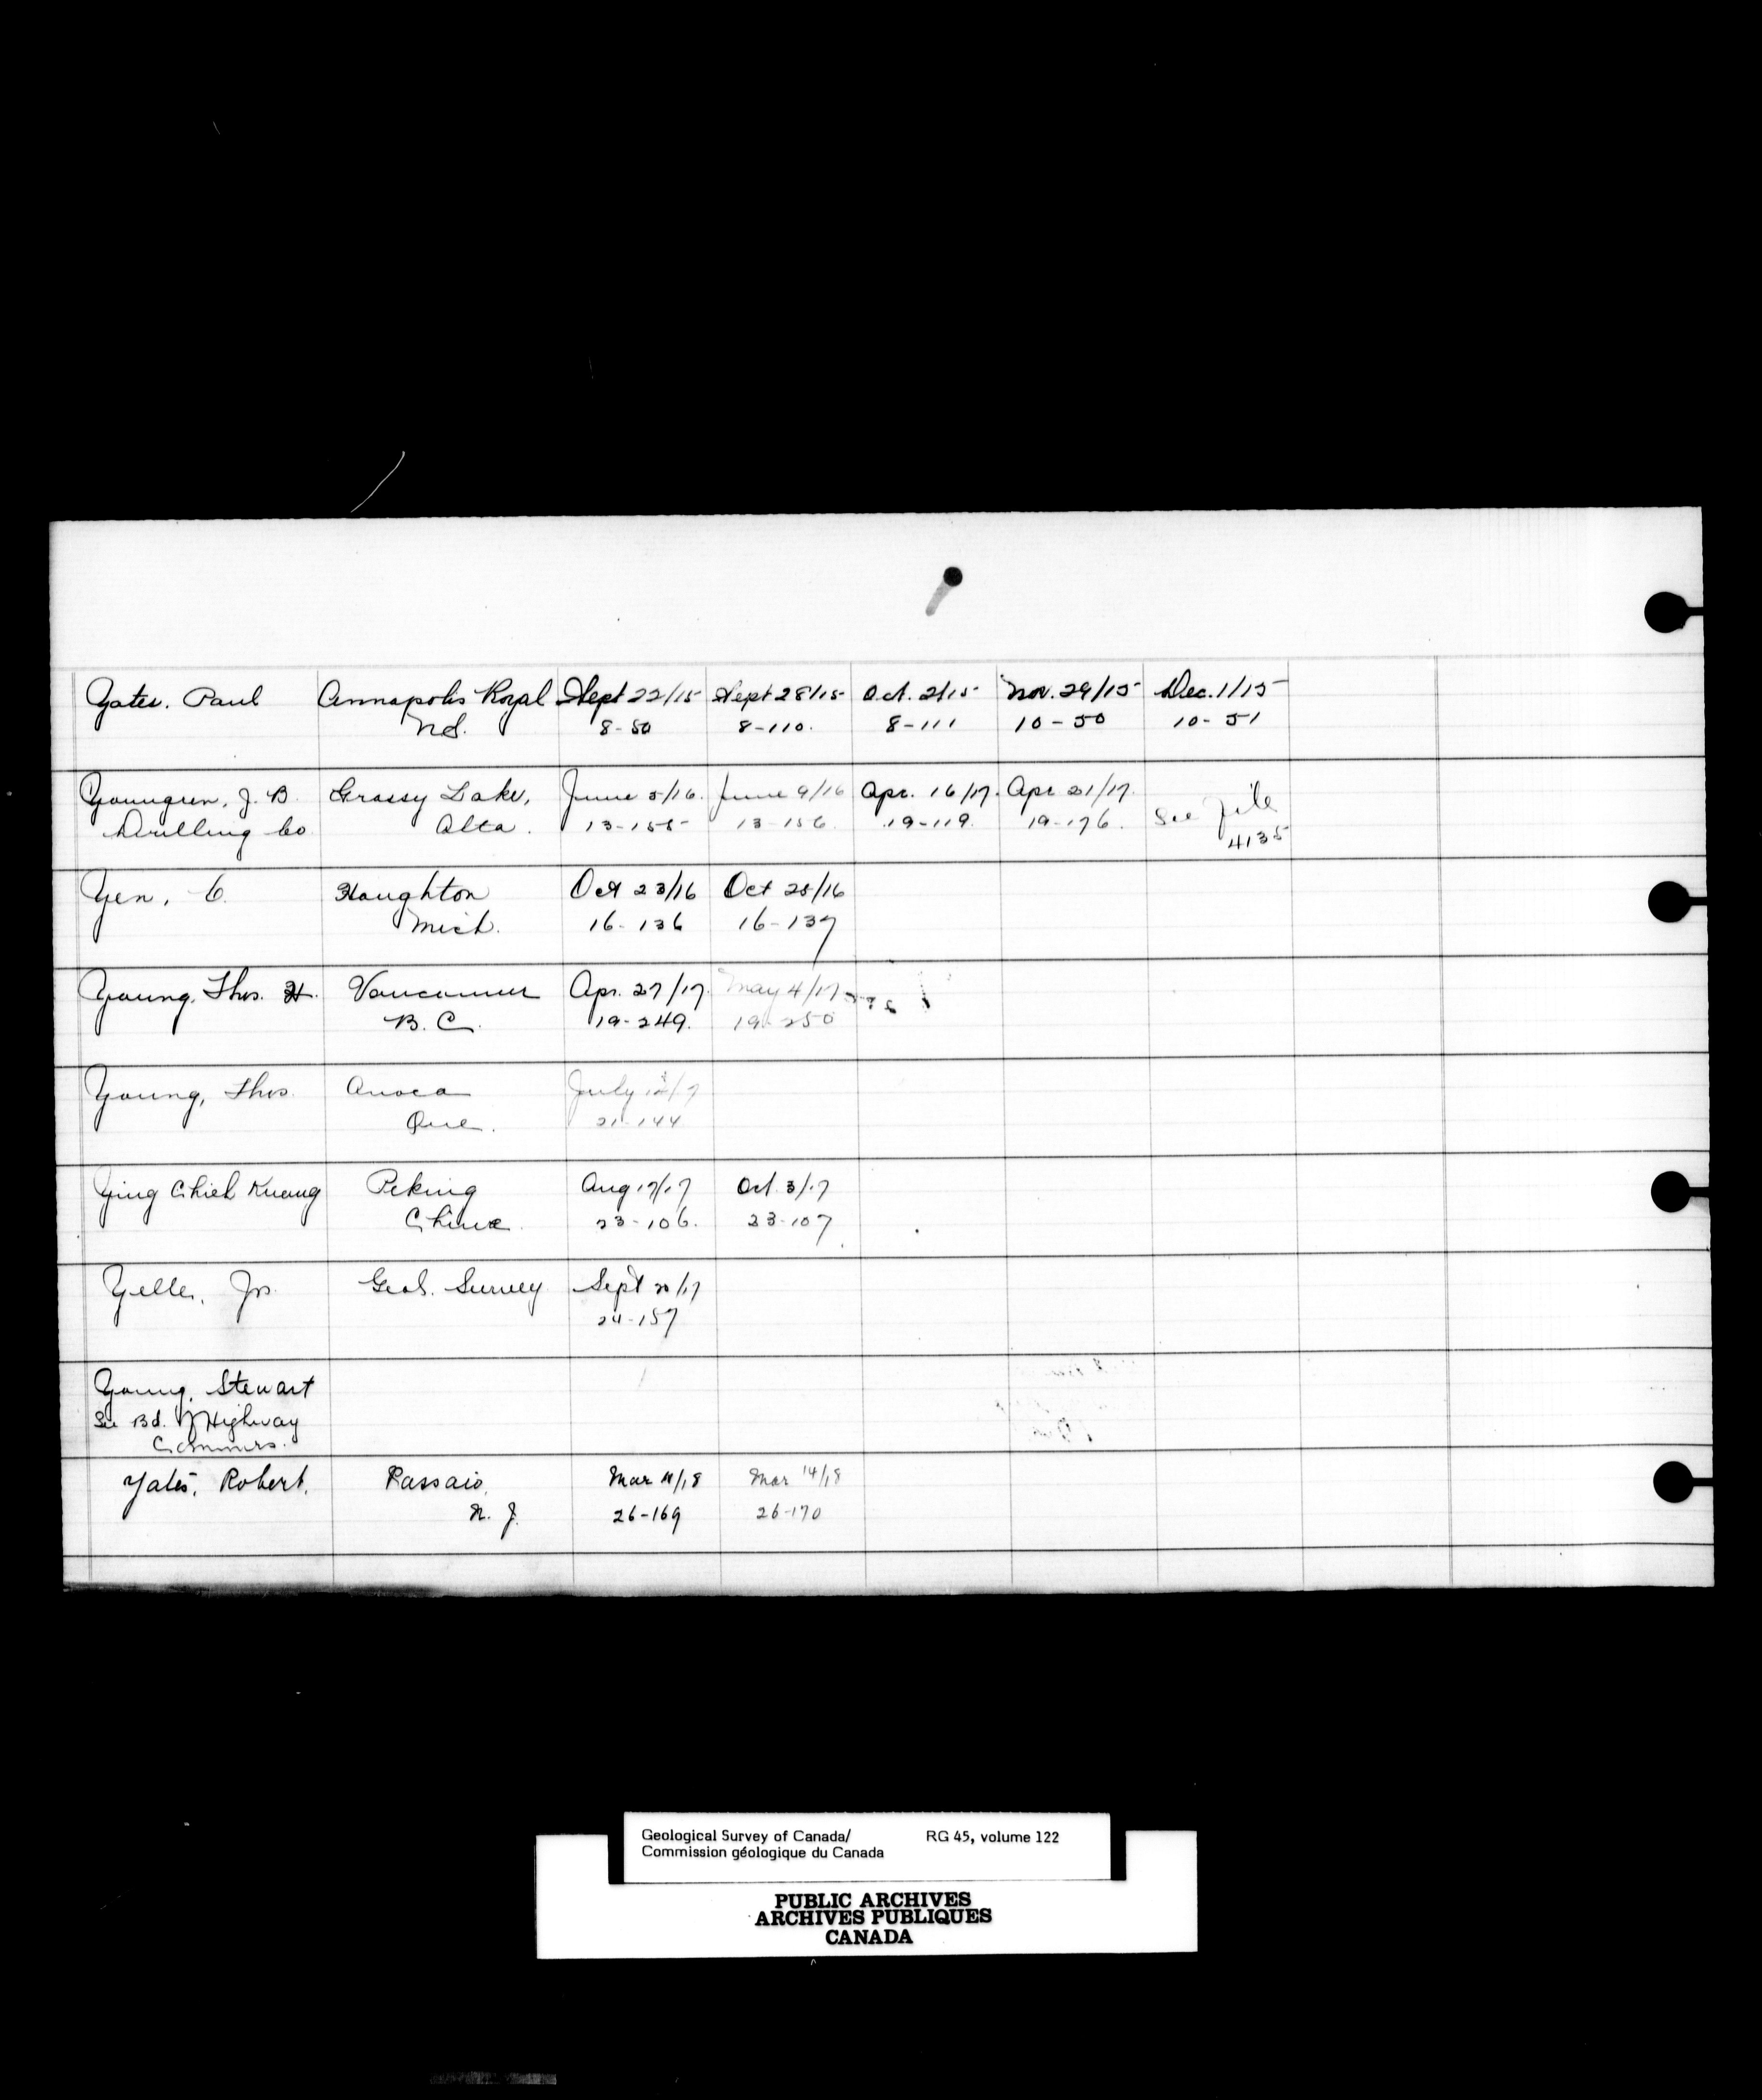 Yates. Paul Annapolis Royal Sept 22/15 Sept 28/15 Oct. 2/15 Nov. 29/15 Dec. 1/15
N.S. 8-80 8-110. 8-111 10-50 10-51
Youngren, J. B. Grassy Lake, June 5/16. June 9/16 Apr. 16/17. Apr 21/17. See file
Drilling Co Alta. 13-155 13-156 19-119. 19-176. 4135
Yen, C. Houghton Oct 23/16 Oct 25/16
Mich. 16-136 16-137
Young, Thos. H. Vancouver Apr. 27/17. May 4/17
B.C. 19-249. 19-250
Young, Thos. July
Que. 21-144
Ying Chieh Kuang Peking Aug 17/17 Oct. 3/17
China. 23-106. 23-107
Yelle, Jos. Geol. Survey Sept 20/17
24-157
Young, Stewart
See Bd. of Highway
Commrs.
Yates, Robert. Passaic, Mar 11/18 Mar 14/18
N. J. 26-169 26-170
Geological Survey of Canada/ RG 45, volume 122
Commission géologique du Canada
PUBLIC ARCHIVES
ARCHIVES PUBLIQUES
CANADA